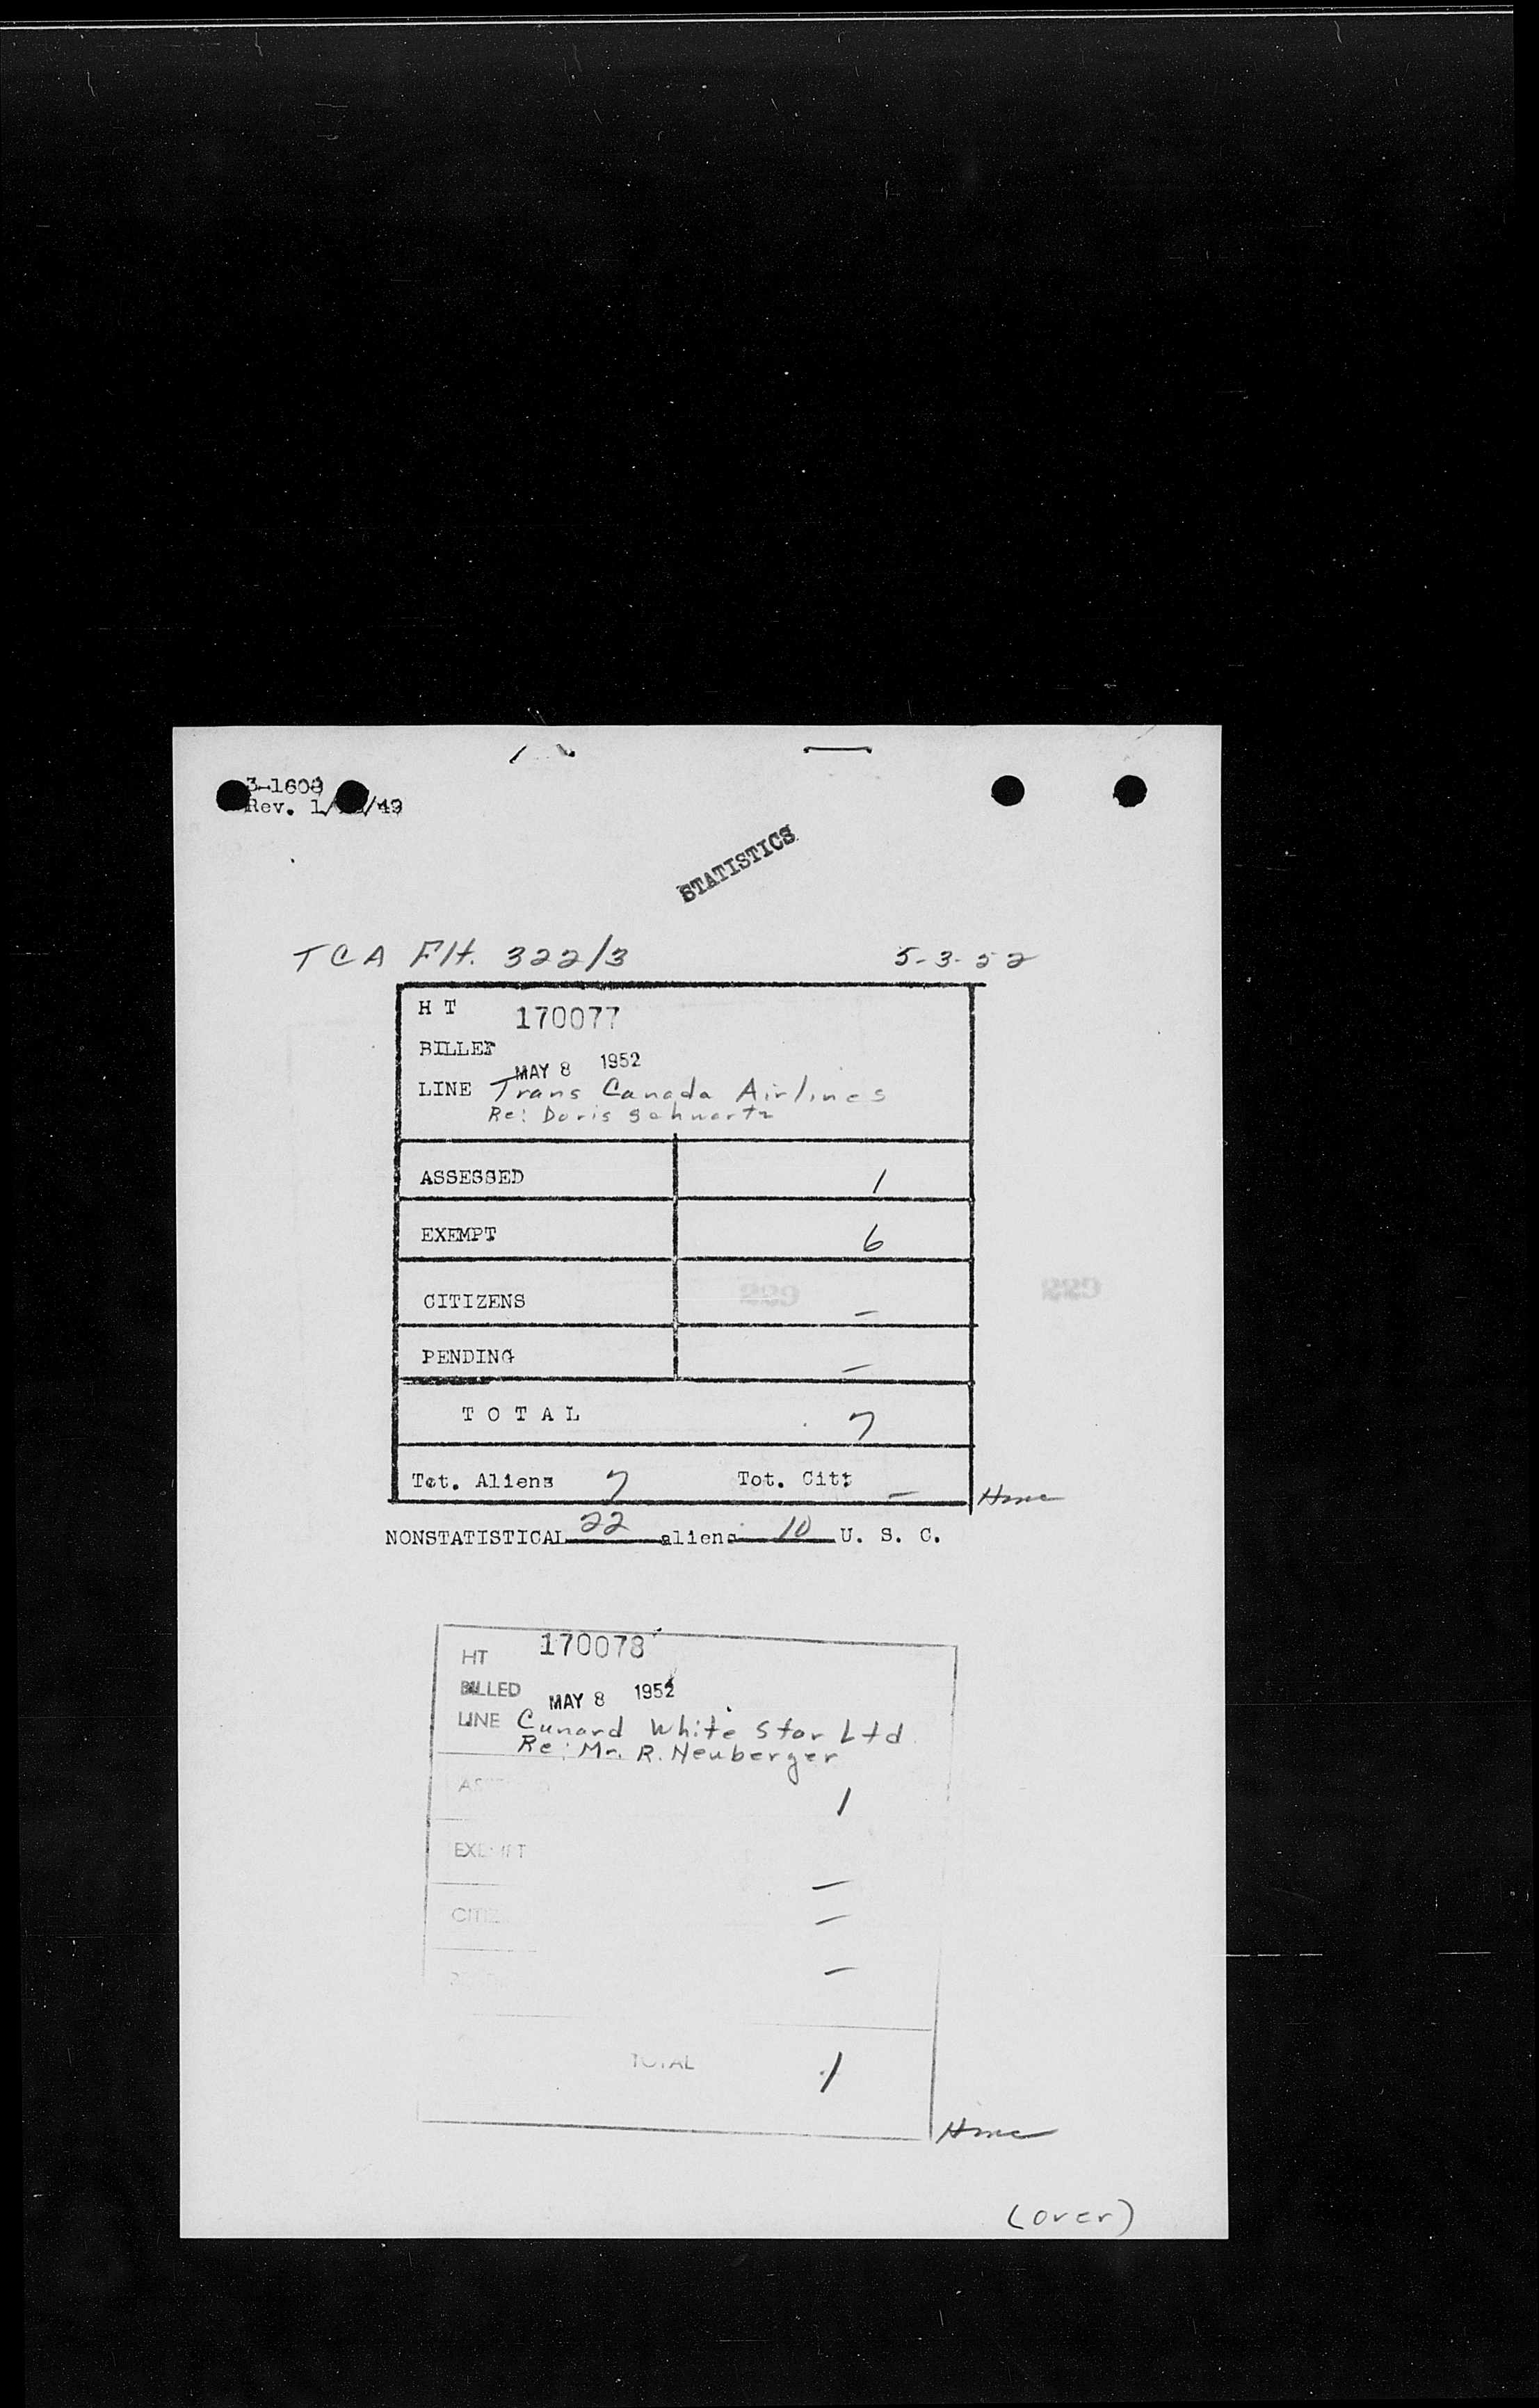 3-1608
Rev. 1/ /49
STATISTICS
TCA Flt. 322/3 5-3-52
H T 170077
BILLED
MAY 8 1952
LINE Trans Canada Airlines
Re: Doris Schwartz
ASSESSED 1
EXEMPT 6
CITIZENS –
PENDING –
T O T A L 7
Tot. Aliens 7 Tot. Citz –
NONSTATISTICAL 22 aliens 10 U. S. C.
HT 170078
BILLED MAY 8 1952
LINE Cunard White Star Ltd
Re: Mr. R. Neuberger
1
EXEMPT
–
CITIZ
–
–
TOTAL 1
(over)